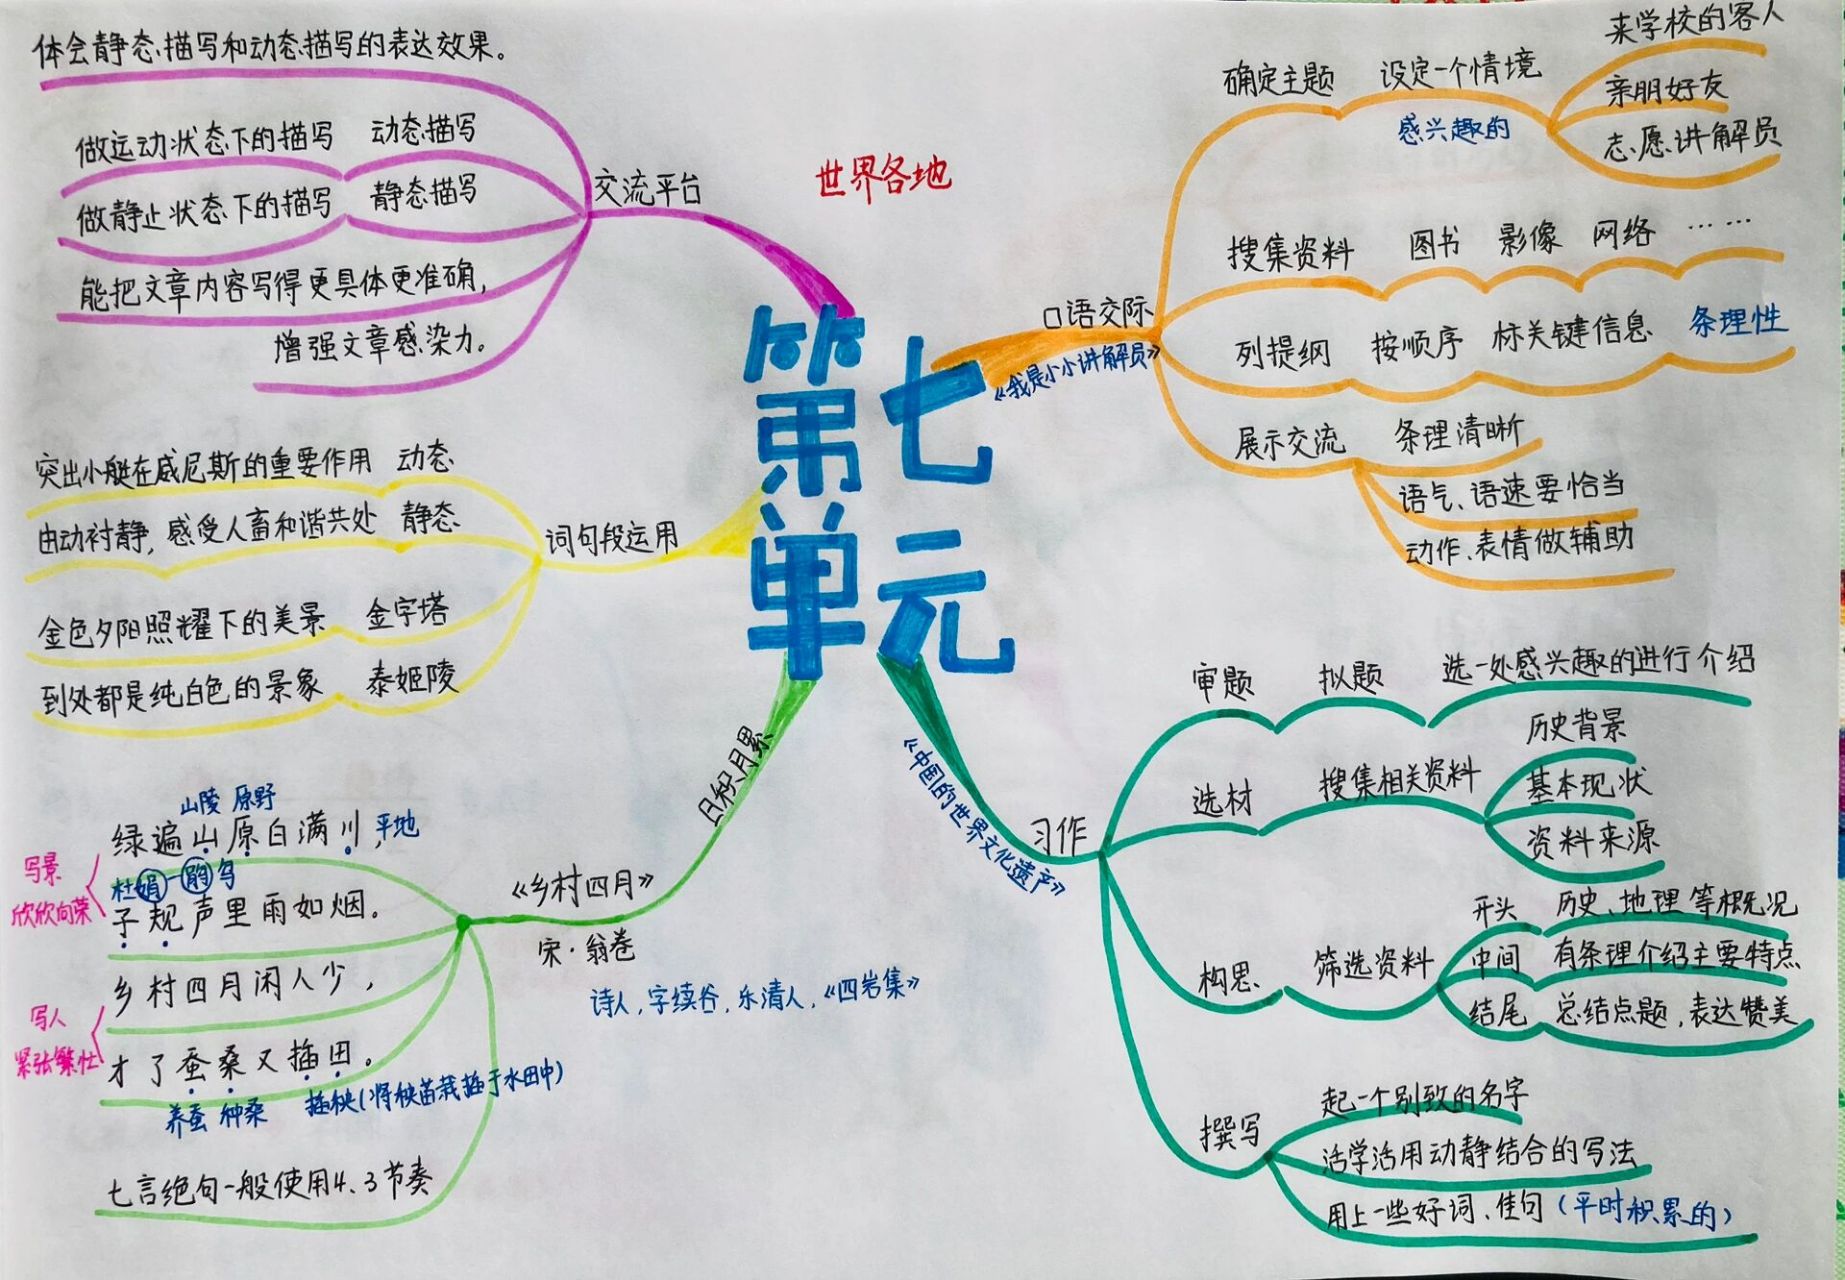 世界各地
第七
单元
交流平台
体会静态描写和动态描写的表达效果。
做运动状态下的描写 动态描写
做静止状态下的描写 静态描写
能把文章内容写得更具体更准确,
增强文章感染力。
词句段运用
突出小艇在威尼斯的重要作用 动态
由动衬静,感受人畜和谐共处 静态
金色夕阳照耀下的美景 金字塔
到处都是纯白色的景象 泰姬陵
日积月累
《乡村四月》
宋·翁卷
诗人,字续谷,乐清人,《四岩集》
山陵 原野
绿遍山原白满川, 平地
写景
欣欣向荣
杜娟-鹃鸟
子规声里雨如烟。
乡村四月闲人少,
写人
紧张繁忙
才了蚕桑又插田。
养蚕 种桑 插秧(将秧苗栽插于水田中)
七言绝句一般使用4、3节奏
口语交际
《我是小小讲解员》
确定主题 设定一个情境
感兴趣的
来学校的客人
亲朋好友
志愿讲解员
搜集资料 图书 影像 网络 ……
列提纲 按顺序 标关键信息 条理性
展示交流 条理清晰
语气、语速要恰当
动作、表情做辅助
习作
《中国的世界文化遗产》
审题 拟题 选一处感兴趣的进行介绍
选材 搜集相关资料
历史背景
基本现状
资料来源
构思 筛选资料
开头 历史、地理等概况
中间 有条理介绍主要特点
结尾 总结点题,表达赞美
撰写
起一个别致的名字
活学活用动静结合的写法
用上一些好词、佳句(平时积累的)